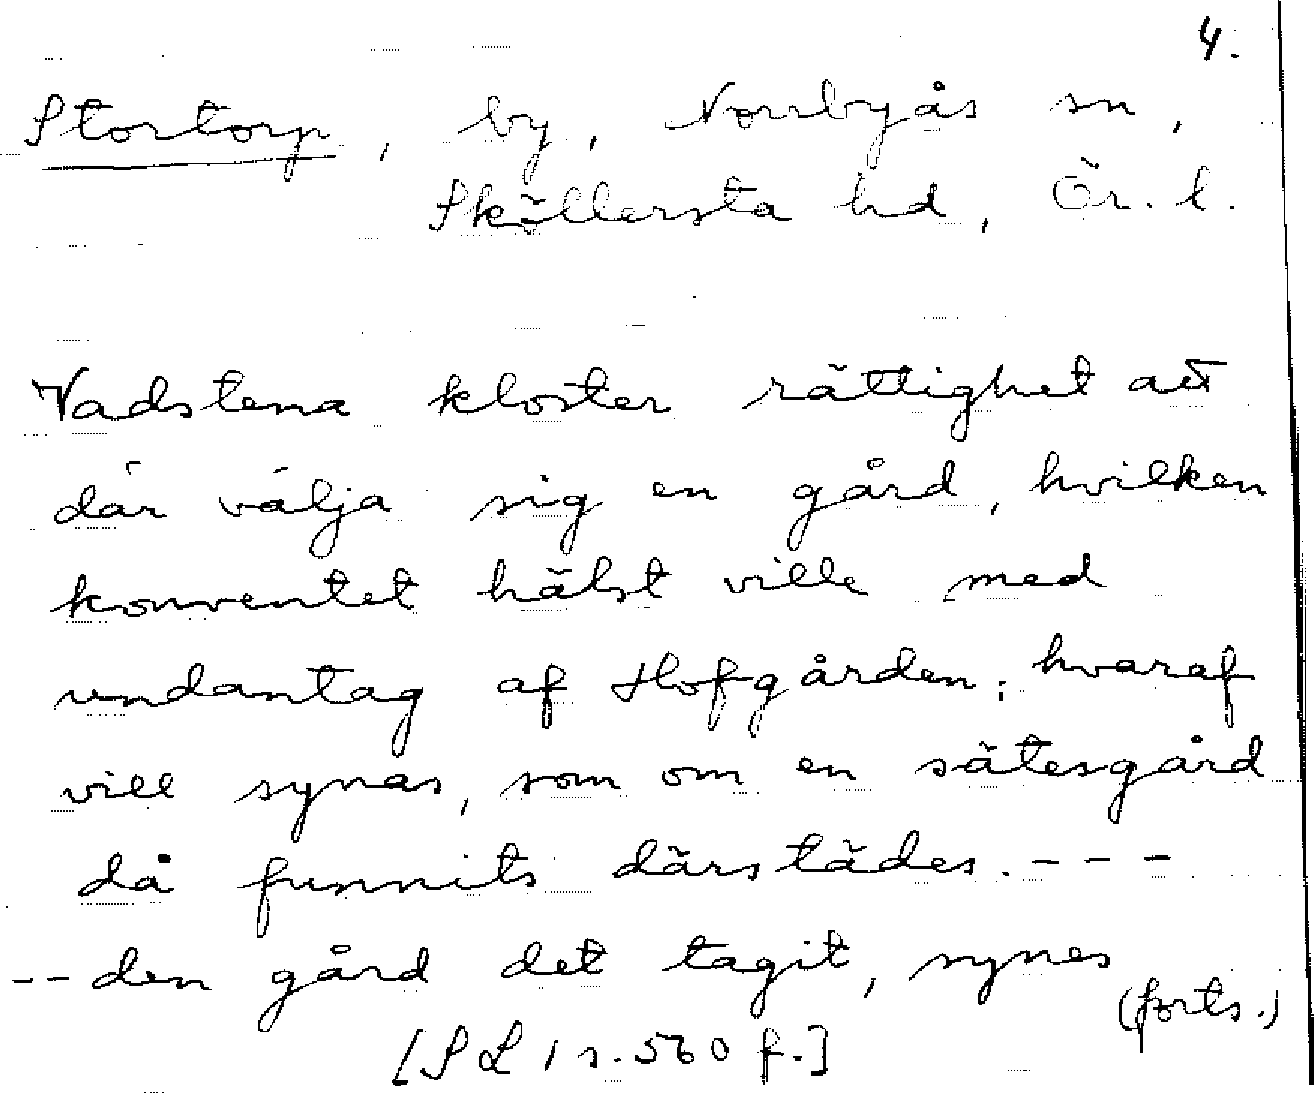 4.
Stortorp, by, Norrbyås sn,
Sköllersta hd, Ör. l.
Vadstena kloster rättighet att
där välja sig en gård, hvilken
konventet hälst ville med
undantag af Hofgården; hvaraf
vill synas, som om en sätesgård
då funnits därstädes. - - -
- - den gård det tagit, synes
(forts.)
[SL 1 s. 560 f.]